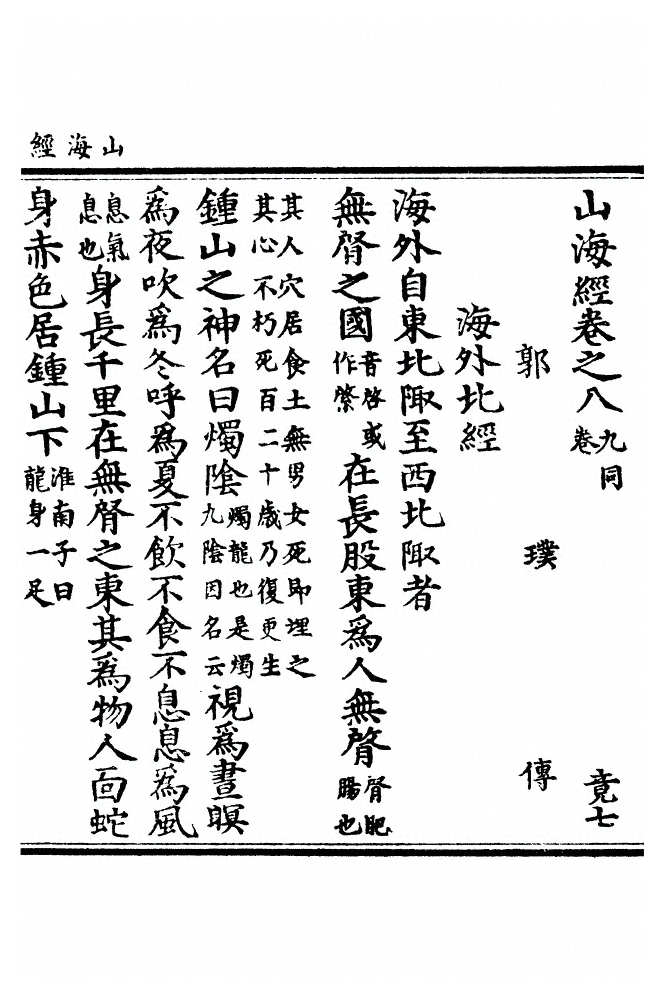 山海經
山海經卷之八九同卷 竟七
郭 璞 傳
海外北經
海外自東北陬至西北陬者
無䏿之國音啓或作綮在長股東爲人無䏿䏿肥腸也
其人穴居食土無男女死即埋之
其心不朽死百二十歲乃復更生
鍾山之神名曰燭陰燭龍也是燭九陰因名云視爲晝瞑
爲夜吹爲冬呼爲夏不飲不食不息息爲風
息氣息也身長千里在無䏿之東其爲物人面蛇
身赤色居鍾山下淮南子曰龍身一足